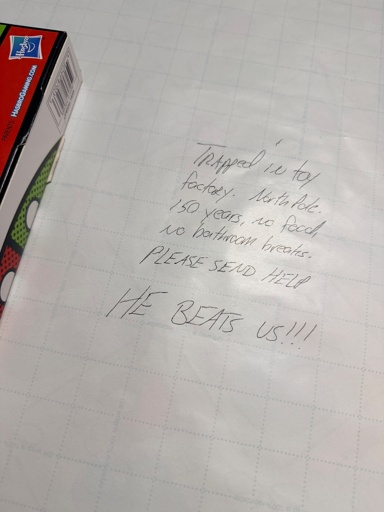 Hasbro
HASBROGAMING.COM
Trapped in toy
factory. North Pole.
150 years, no food,
no bathroom breaks.
PLEASE SEND HELP
HE BEATS US!!!